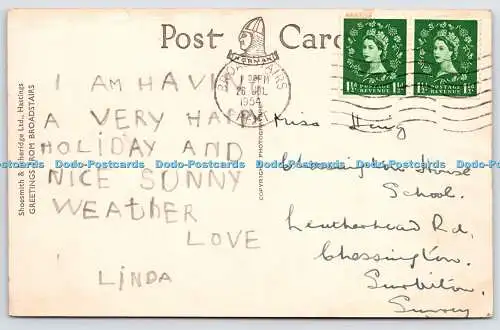 Post Card
NORMAN
BROADSTAIRS
26 JUL
1954
1½D POSTAGE REVENUE 1½D
1½D POSTAGE REVENUE 1½D
I AM HAVI
A VERY HAPPY
HOLIDAY AND
NICE SUNNY
WEATHER
LOVE
LINDA
Miss
Chessington House
School.
Leatherhead Rd,
Chessington.
Surbiton,
Surrey
Shoesmith & Etheridge Ltd., Hastings
GREETINGS FROM BROADSTAIRS
COPYRIGHT PHOTOGRAPH
Dodo-Postcards Dodo-Postcards Dodo-Postcards Dodo-Postcards Dodo-Postcards Dodo-Postcards